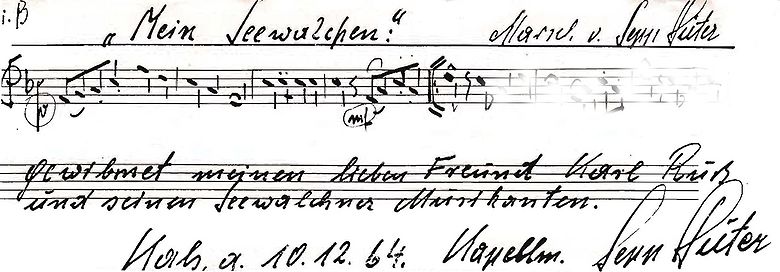 i. B
„Mein Seewalchen:“ Marsch v. Sepp Hüter
p mf
gewidmet meinen lieben Freund Karl
und seinen Seewalchner Musikanten.
a. 10.12.64. Kapellm. Sepp Hüter